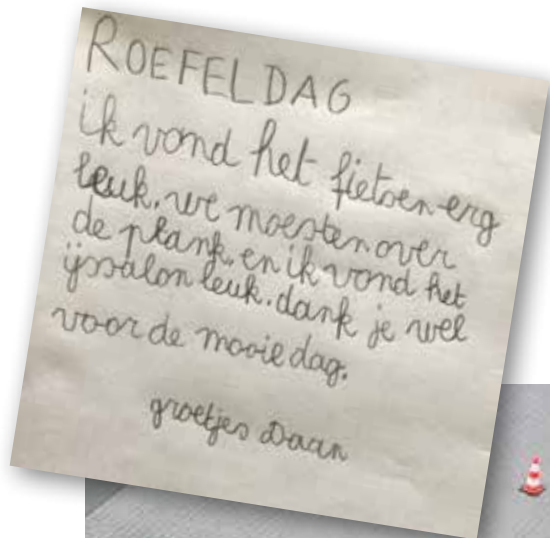 ROEFELDAG
ik vond het fietsen erg
leuk. we moesten over
de plank. en ik vond het
ijssalon leuk. dank je wel
voor de mooie dag.
groetjes Daan